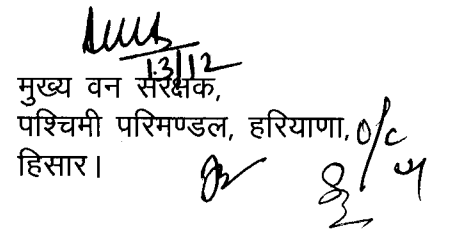 13/12
मुख्य वन संरक्षक,
पश्चिमी परिमण्डल, हरियाणा, O/C
हिसार।